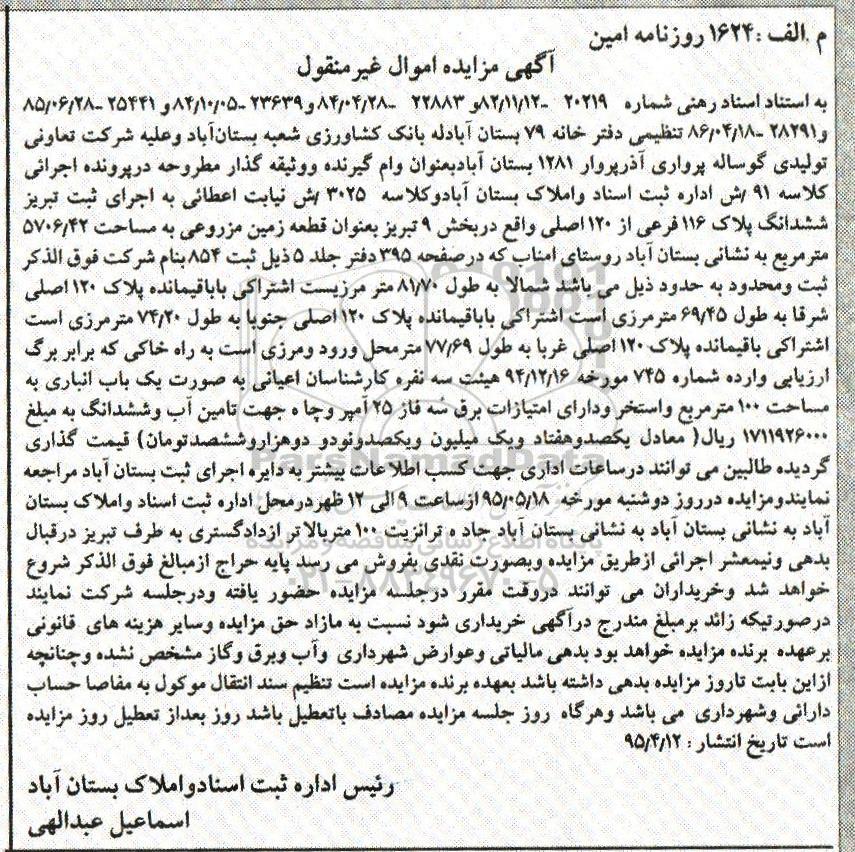 م .الف :۱۶۲۴ روزنامه امین
آگهی مزایده اموال غیرمنقول
به استناد اسناد رهنی شماره ۲۰۲۱۹ -۸۲/۱۱/۱۲و ۲۲۸۸۳ -۸۴/۰۴/۲۸ و۲۳۶۳۹ -۸۴/۱۰/۰۵ و ۲۵۴۴۱ -۸۵/۰۶/۲۸
و۲۸۲۹۱ -۸۶/۰۴/۱۸ تنظیمی دفتر خانه ۷۹ بستان آبادله بانک کشاورزی شعبه بستان‌آباد وعلیه شرکت تعاونی
تولیدی گوساله پرواری آذرپروار ۱۲۸۱ بستان آبادبعنوان وام گیرنده ووثیقه گذار مطروحه درپرونده اجرائی
کلاسه ۹۱ /ش اداره ثبت اسناد واملاک بستان آبادوکلاسه ۳۰۲۵ /ش نیابت اعطائی به اجرای ثبت تبریز
ششدانگ پلاک ۱۱۶ فرعی از ۱۲۰ اصلی واقع دربخش ۹ تبریز بعنوان قطعه زمین مزروعی به مساحت ۵۷۰۶/۴۲
مترمربع به نشانی بستان آباد روستای امناب که درصفحه ۳۹۵ دفتر جلد ۵ ذیل ثبت ۸۵۴ بنام شرکت فوق الذکر
ثبت ومحدود به حدود ذیل می باشد شمالا به طول ۸۱/۷۰ متر مرزیست اشتراکی باباقیمانده پلاک ۱۲۰ اصلی
شرقا به طول ۶۹/۴۵ مترمرزی است اشتراکی باباقیمانده پلاک ۱۲۰ اصلی جنوبا به طول ۷۴/۲۰ مترمرزی است
اشتراکی باقیمانده پلاک ۱۲۰ اصلی غربا به طول ۷۷/۶۹ مترمحل ورود ومرزی است به راه خاکی که برابر برگ
ارزیابی وارده شماره ۷۴۵ مورخه ۹۴/۱۲/۱۶ هیئت سه نفره کارشناسان اعیانی به صورت یک باب انباری به
مساحت ۱۰۰ مترمربع واستخر ودارای امتیازات برق سه فاز ۲۵ آمپر وچا ه جهت تامین آب وششدانگ به مبلغ
۱۷۱۱۹۲۶۰۰۰ ریال( معادل یکصدوهفتاد ویک میلیون ویکصدونودو دوهزاروششصدتومان) قیمت گذاری
گردیده طالبین می توانند درساعات اداری جهت کسب اطلا عات بیشتر به دایره اجرای ثبت بستان آباد مراجعه
نمایندومزایده درروز دوشنبه مورخه ۹۵/۰۵/۱۸ ازساعت ۹ الی ۱۲ ظهردرمحل اداره ثبت اسناد واملاک بستان
آباد به نشانی بستان آباد به نشانی بستان آباد جاد ه ترانزیت ۱۰۰ متربالا تر ازدادگستری به طرف تبریز درقبال
بدهی ونیمعشر اجرائی ازطریق مزایده وبصورت نقدی بفروش می رسد پایه حراج ازمبالغ فوق الذکر شروع
خواهد شد وخریداران می توانند دروقت مقرر درجلسه مزایده حضور یافته ودرجلسه شرکت نمایند
درصورتیکه زائد برمبلغ مندرج درآگهی خریداری شود نسبت به مازاد حق مزایده وسایر هزینه های قانونی
برعهده برنده مزایده خواهد بود بدهی مالیاتی وعوارض شهرداری وآب وبرق وگاز مشخص نشده وچنانچه
ازاین بابت تاروز مزایده بدهی داشته باشد بعهده برنده مزایده است تنظیم سند انتقال موکول به مفاصا حساب
دارائی وشهرداری می باشد وهرگاه روز جلسه مزایده مصادف باتعطیل باشد روز بعداز تعطیل روز مزایده
است تاریخ انتشار : ۹۵/۴/۱۲
رئیس اداره ثبت اسنادواملاک بستان آباد
اسماعیل عبدالهی
ParsNamadData
پایگاه اطلاع رسانی مناقصه و مزایده
۰۲۱-۸۸۳۴۹۶۷۰-۵